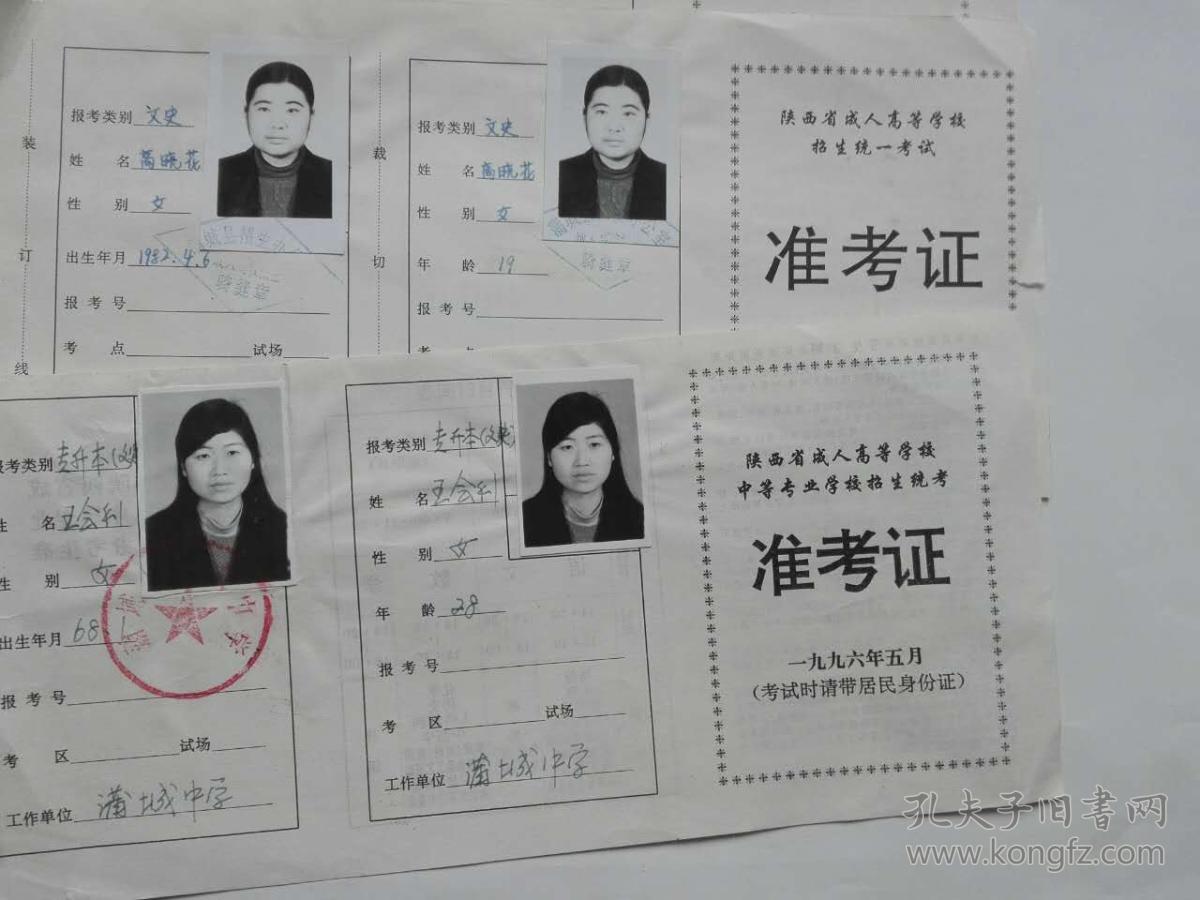 装
订
线
报考类别 文史
姓 名 高晓花
性 别 女
出生年月 1982.4.6
报 考 号
考 点 试场
骑缝章
裁
切
报考类别 文史
姓 名 高晓花
性 别 女
年 龄 19
报 考 号
骑缝章
陕西省成人高等学校
招生统一考试
准考证
报考类别 专升本(文史
姓 名 王会利
性 别 女
出生年月 68.1
报 考 号
考 区 试场
工作单位 蒲城中学
报考类别 专升本(文史)
姓 名 王会利
性 别 女
年 龄 28
报 考 号
考 区 试场
工作单位 蒲城中学
陕西省成人高等学校
中等专业学校招生统考
准考证
一九九六年五月
(考试时请带居民身份证)
孔夫子旧书网
www.kongfz.com